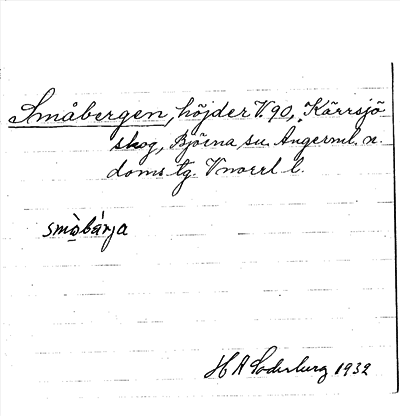 Småbergen, höjder V. 90, Kärrsjö
skog, Björna sn. Ångerml. n.
doms. tg. Vnorrl l.
smòbárja
H A Söderburg 1932